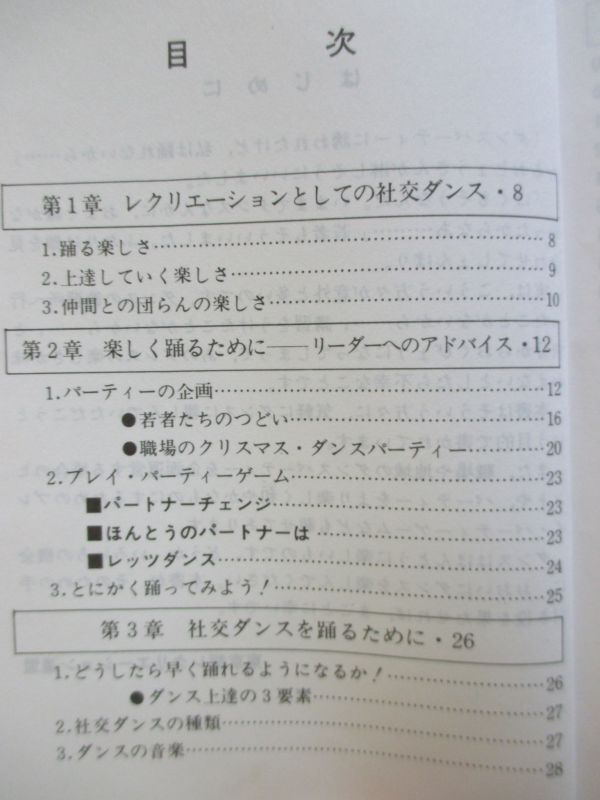 目　次
第1章　レクリエーションとしての社交ダンス・8
1.踊る楽しさ……8
2.上達していく楽しさ……9
3.仲間との団らんの楽しさ……10
第2章　楽しく踊るために――リーダーへのアドバイス・12
1.パーティーの企画……12
●若者たちのつどい……16
●職場のクリスマス・ダンスパーティー……20
2.プレイ・パーティーゲーム……23
■パートナーチェンジ……23
■ほんとうのパートナーは……23
■レッツダンス……24
3.とにかく踊ってみよう！……25
第3章　社交ダンスを踊るために・26
1.どうしたら早く踊れるようになるか！……26
●ダンス上達の3要素……27
2.社交ダンスの種類……27
3.ダンスの音楽……28